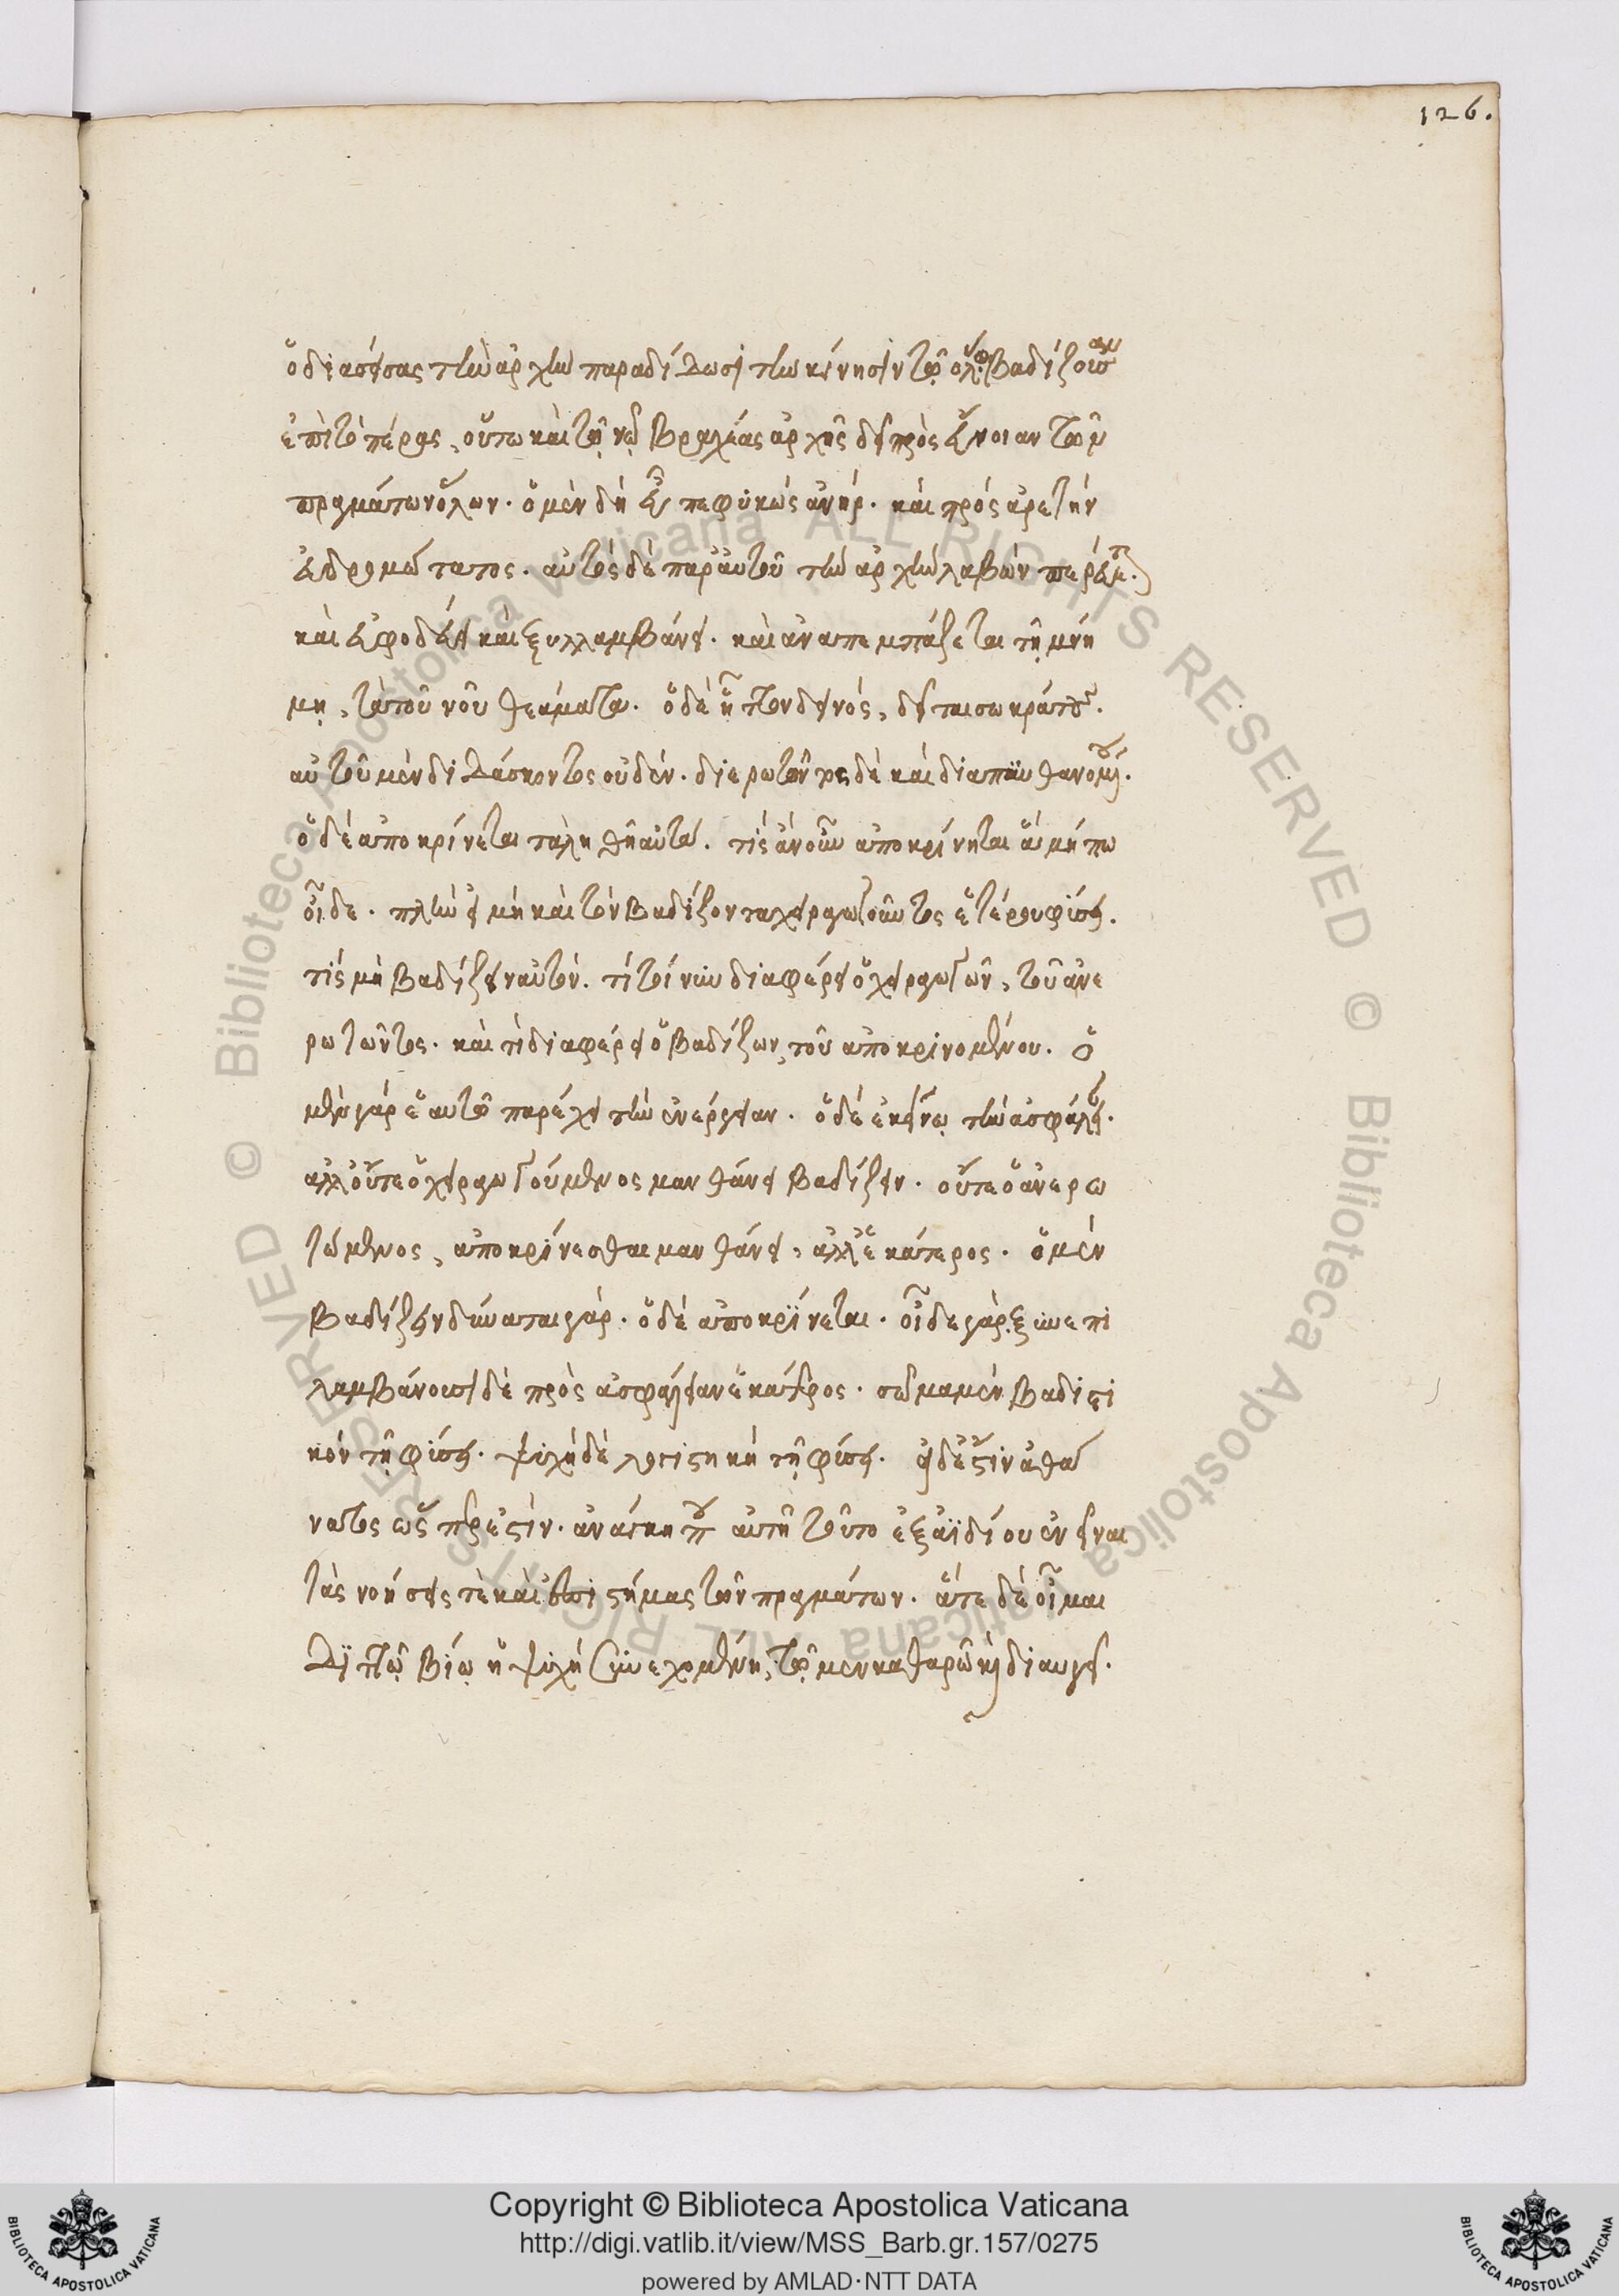 126.
ὁ διασείσας τὴν ἀρχὴν παραδίδωσι τὴν κίνησιν τῷ ὅλῳ βαδίζουσαν
ἐπὶ τὸ πέρας, οὕτω καὶ τῷ νῷ βραχείας ἀρχῆς δεῖ πρὸς ἔννοιαν τῶν
πραγμάτων ὅλων. ὁ μὲν δὴ εὖ πεφυκὼς ἀνήρ. καὶ πρὸς ἀρετὴν
εὐδρομώτατος. αὐτὸς δὲ παρ' αὑτοῦ τὴν ἀρχὴν λαβὼν
καὶ ἐφοδεύει καὶ ξυλλαμβάνει. καὶ ἀναπεμπάζεται τῇ μνή
μῃ, τὰ τοῦ νοῦ θεάματα. ὁ δὲ ἧττον δεινός, δεῖται σωκράτους.
αὐτοῦ μὲν διδάσκοντος οὐδέν. διερωτῶντος δὲ καὶ διαπυνθανομένου.
ὁ δὲ ἀποκρίνεται τἀληθῆ αὐτά. τίς ἂν οὖν ἀποκρίνηται ἃ μήπω
οἶδε. πλὴν εἰ μὴ καὶ τὸν βαδίζοντα χειραγωγοῦντος ἑτέρου φήσει.
τίς μὴ βαδίζειν αὐτόν. τί τοίνυν διαφέρει ὁ χειραγωγῶν, τοῦ ἀνε
ρωτῶντος. καὶ τί διαφέρει ὁ βαδίζων, τοῦ ἀποκρινομένου. ὁ
μὲν γὰρ ἑαυτῷ παρέχει τὴν ἐνέργειαν. ὁ δὲ ἐκείνῳ τὴν ἀσφάλειαν.
ἀλλ' οὔτε ὁ χειραγωγούμενος μανθάνει βαδίζειν. οὔτε ὁ ἀνερω
τώμενος, ἀποκρίνεσθαι μανθάνει, ἀλλ' ἑκάτερος. ὁ μὲν
βαδίζειν δύναται γάρ. ὁ δὲ ἀποκρίνεται. οἶδε γὰρ. ξυνεπι
λαμβάνουσι δὲ πρὸς ἀσφάλειαν ἑκάτερος. σῶμα μὲν βαδιστι
κὸν τῇ φύσει. ψυχὴ δὲ λογιστικὴ τῇ φύσει. εἰ δέ ἐστιν ἀθά
νατος ὥσπερ ἐστίν. ἀνάγκη που αὐτῇ τοῦτο ἐξ ἀϊδίου ἐνεῖναι
τὰς νοήσεις τὲ καὶ ἐπιστήμας τῶν πραγμάτων. ἅτε δὲ οἶμαι
διττῷ βίῳ ἡ ψυχὴ συνεχομένη, τῷ μὲν καθαρῷ καὶ διαυγεῖ.
Copyright © Biblioteca Apostolica Vaticana
http://digi.vatlib.it/view/MSS_Barb.gr.157/0275
powered by AMLAD·NTT DATA